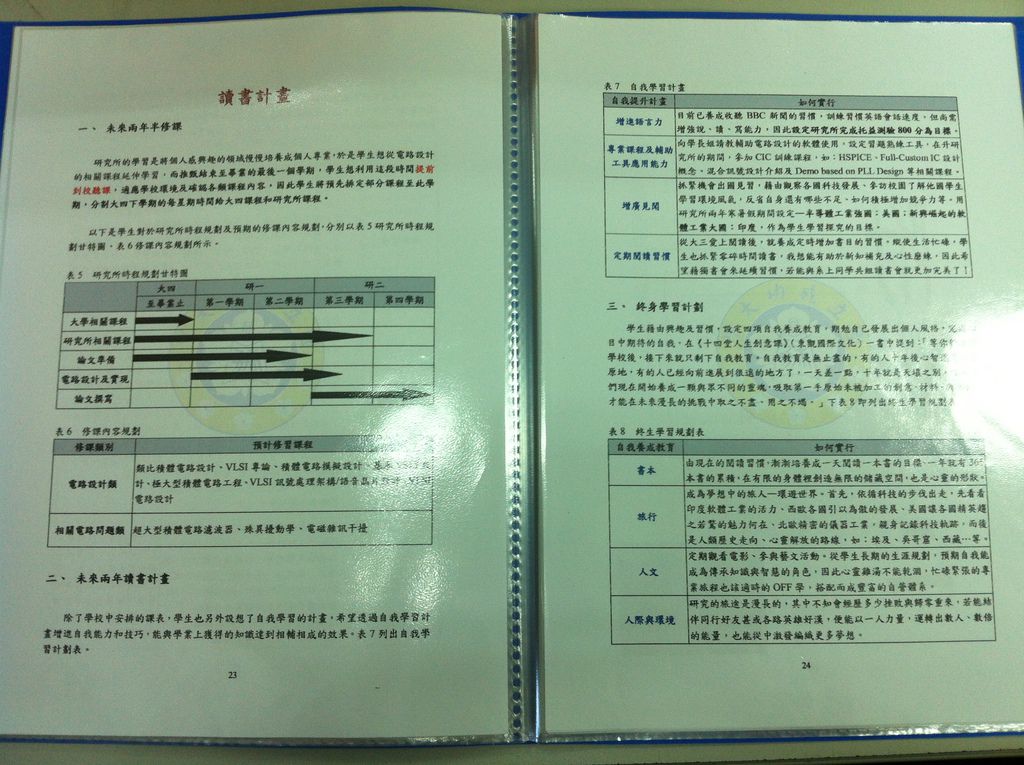 讀書計畫
一、 未來兩年半修課
研究所的學習是將個人感興趣的領域慢慢培養成個人專業,於是學生想從電路設計
的相關課程延伸學習,而推甄結束至畢業的最後一個學期,學生想利用這段時間提前
到校聽課,適應學校環境及確認各類課程內容,因此學生將預先排定部分課程至此學
期,分割大四下學期的每星期時間給大四課程和研究所課程。
以下是學生對於研究所時程規劃及預期的修課內容規劃,分別以表5研究所時程規
劃甘特圖、表6修課內容規劃所示。
表5 研究所時程規劃甘特圖
大四 研一 研二
至畢業止 第一學期 第二學期 第三學期 第四學期
大學相關課程
研究所相關課程
論文準備
電路設計及實現
論文撰寫
表6 修課內容規劃
修課類別 預計修習課程
電路設計類
類比積體電路設計、VLSI導論、積體電路模擬設計、
計、極大型積體電路工程、VLSI訊號處理架構/語音晶片設計、VLSI
電路設計
相關電路問題類 超大型積體電路濾波器、殊異擾動學、電磁雜訊干擾
二、 未來兩年讀書計畫
除了學校中安排的課表,學生也另外設想了自我學習的計畫,希望透過自我學習計
畫增進自我能力和技巧,能與學業上獲得的知識達到相輔相成的效果。表7列出自我學
習計劃表。
23
表7 自我學習計畫
自我提升計畫 如何實行
增進語言力
目前已養成收聽BBC新聞的習慣,訓練習慣英語會話速度,但尚需
增強說、讀、寫能力,因此設定研究所完成托益測驗800分為目標。
專業課程及輔助
工具應用能力
向學長姐請教輔助電路設計的軟體使用,設定習題熟練工具,在升研
究所的期間,參加CIC訓練課程,如:HSPICE、Full-Custom IC設計
概念、混合訊號設計介紹及Demo based on PLL Design等相關課程。
增廣見聞
抓緊機會出國見習,藉由觀察各國科技發展、參訪校園了解他國學生
學習環境風氣,反省自身還有哪些不足、如何積極增加競爭力等。用
研究所兩年寒暑假期間設定一半導體工業強國:美國;新興崛起的軟
體工業大國:印度,作為學生學習探究的目標。
定期閱讀習慣
從大三愛上閱讀後,就養成定時增加書目的習慣。縱使生活忙碌,學
生也抓緊零碎時間讀書,我想能有助於新知補充及心性磨練,因此希
望藉獨書會來延續習慣,若能與系上同學共組讀書會就更加完美了!
三、 終身學習計劃
學生藉由興趣及習慣,設定四項自我養成教育,期勉自己發展出個人風格,
目中期待的自我。在《十四堂人生創意課》(朱觀國際文化)一書中提到:「等你
學校後,接下來就只剩下自我教育。自我教育是無止盡的,有的人十年後心智
原地,有的人已經向前進展到很遠的地方了,一天差一點,十年就是天壤之別,
們現在開始養成一顆與眾不同的靈魂,吸取第一手原始未被加工的創意、材料、
才能在未來漫長的挑戰中取之不盡、用之不竭。」下表8即列出終生學習規劃表
表8 終生學習規劃表
自我養成教育 如何實行
書本
由現在的閱讀習慣,漸漸培養成一天閱讀一本書的目標,一年就有36
本書的累積,在有限的身體裡創造無限的儲藏空間,也是心靈的形狀。
旅行
成為夢想中的旅人—環遊世界。首先,依循科技的步伐出走,先看看
印度軟體工業的活力、西歐各國引以為傲的發展、美國讓各國精英趨
之若鶩的魅力何在、北歐精密的儀器工業,親身記錄科技軌跡,而後
是人類歷史走向、心靈解放的路線,如:埃及、吳哥窟、西藏…等。
人文
定期觀看電影、參與藝文活動。從學生長期的生涯規劃,預期自我能
成為傳承知識與智慧的角色,因此心靈雞湯不能乾涸,忙碌緊張的專
業旅程也該適時的OFF學,搭配而成豐富的自管體系。
人際與環境
研究的旅途是漫長的,其中不知會經歷多少挫敗與歸零重來,若能結
伴同行好友甚或各路英雄好漢,便能以一人力量,運轉出數人、數倍
的能量,也能從中激發編織更多夢想。
24